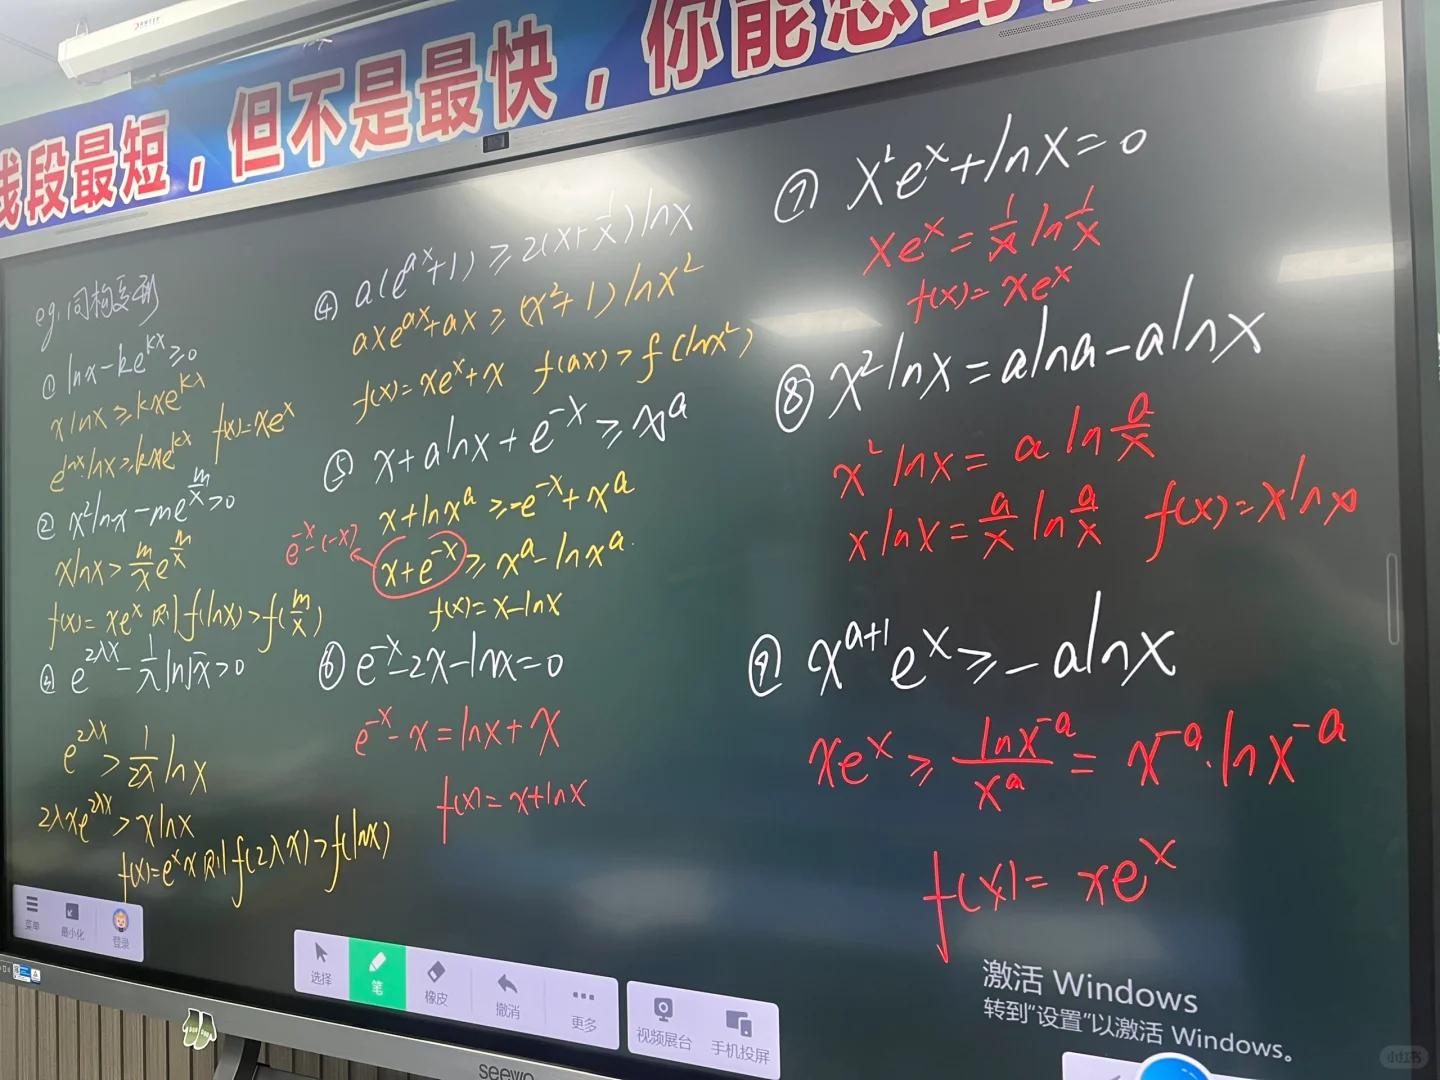 线段最短，但不是最快，你能想到
eg.同构变形
① lnx-ke^{kx}≥0
xlnx≥kxe^{kx}
e^{lnx}·lnx≥kxe^{kx} f(x)=xe^x
② x²lnx-me^{m/x}>0
xlnx>m/x e^{m/x}
f(x)=xe^x 则f(lnx)>f(m/x)
③ e^{2λx}-1/λ ln√x>0
e^{2λx}>1/2λ lnx
2λxe^{2λx}>xlnx
f(x)=e^x x 则f(2λx)>f(lnx)
④ a(e^{ax}+1)≥2(x+1/x)lnx
axe^{ax}+ax≥(x²+1)lnx²
f(x)=xe^x+x f(ax)>f(lnx²)
⑤ x+alnx+e^{-x}≥x^a
x+lnx^a≥-e^{-x}+x^a
e^{-x}-(-x)
x+e^{-x}≥x^a-lnx^a.
f(x)=x-lnx
⑥ e^{-x}-2x-lnx=0
e^{-x}-x=lnx+x
f(x)=x+lnx
⑦ x²e^x+lnx=0
xe^x=1/x ln1/x
f(x)=xe^x
⑧ x²lnx=alna-alnx
x²lnx=a ln a/x
xlnx=a/x ln a/x f(x)=xlnx
⑨ x^{a+1}e^x≥-alnx
xe^x≥lnx^{-a}/x^a=x^{-a}·lnx^{-a}
f(x)=xe^x
激活 Windows
转到"设置"以激活 Windows。
菜单
最小化
登录
选择
笔
橡皮
撤消
更多
视频展台
手机投屏
seewo
小红书